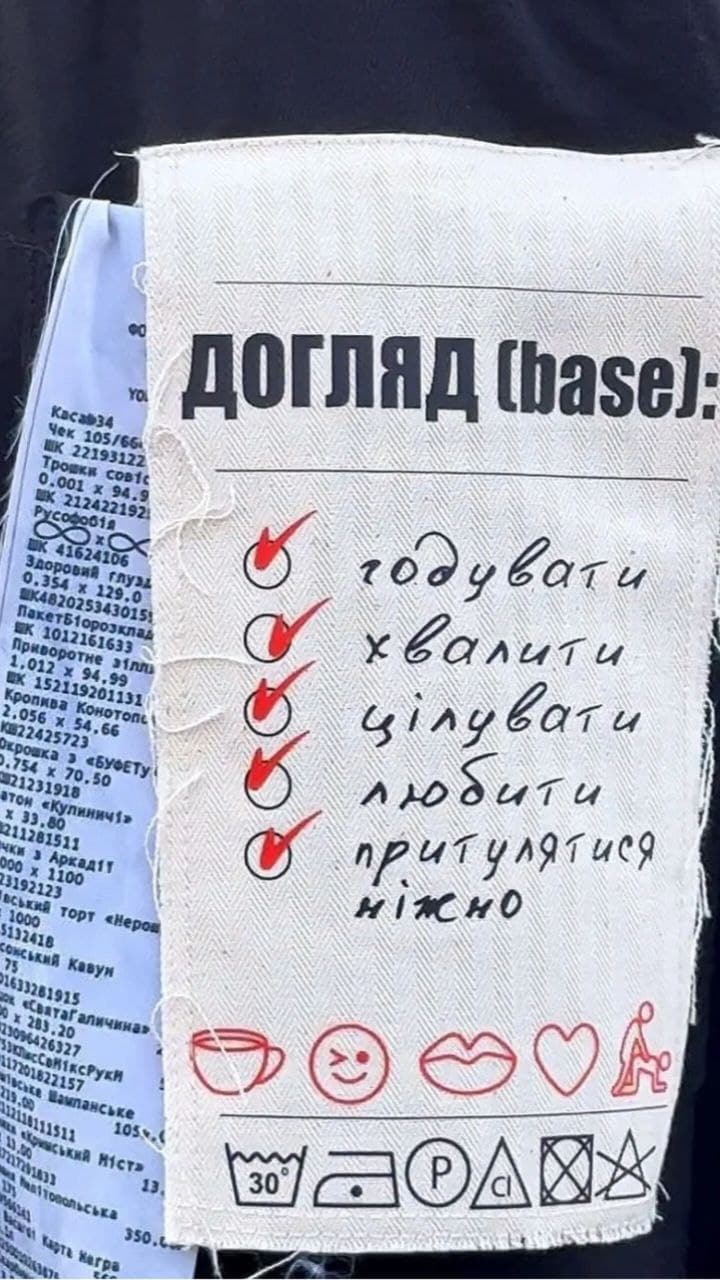 ДОГЛЯД (base):
годувати
хвалити
цілувати
любити
притулятися
ніжно
30°
P
cl
YO
Чек 105/66
ШК 22193122
Трошки совіс
0.001 x 94.9
ШК 212422192
Русофобія
∞ x ∞
ШК 41624106
Здоровий глузд
0.354 x 129.0
ШК4820253430155
ПакетБ1орозклад
ШК 1012161633
Приворотне зілля
1.012 x 94.99
ШК 152119201131
Кропива Конотопс
2.056 x 54.66
КШ22425723
Окрошка з «БУФЕТУ
0.754 x 70.50
Ш21231918
атон «Кулиничі»
x 33.80
8211281511
чки з Аркадії
000 x 1100
23192123
вський торт «Нерон
1000
5132418
сонський Кавун
75
01633281915
ок «СвятаГаличина»
0 x 283.20
23096426327
117201822157
ївське Шампанське
219.00
105
112118111511
«Кримський Міст»
13.00
13.
Мелітопольська
350.
Карта Негра